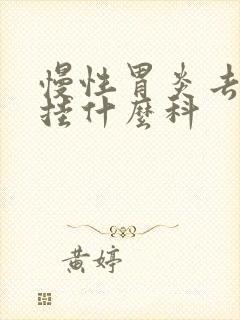 慢性胃炎去
挂什麼科
黄婷